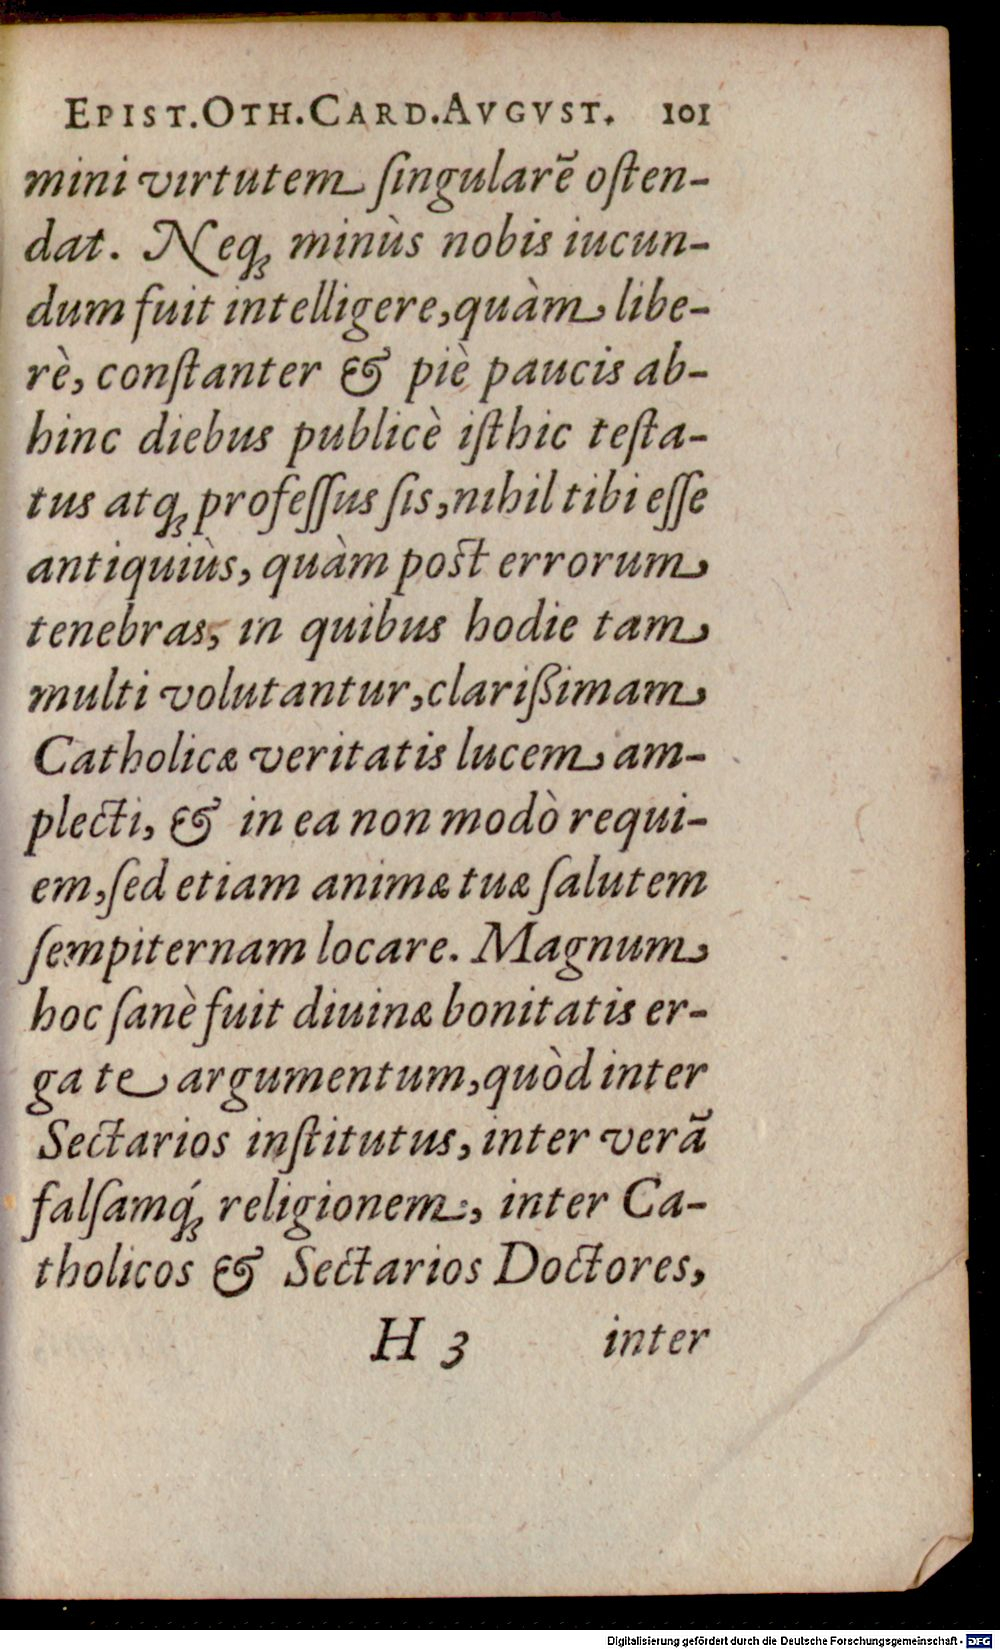 EPIST.OTH.CARD.AVGVST. 101
mini virtutem ſingularẽ oſten-
dat. Neqꝫ minùs nobis iucun-
dum fuit intelligere, quàm libe-
rè, conſtanter & piè paucis ab-
hinc diebus publicè iſthic teſta-
tus atqꝫ profeſſus ſis, nihil tibi eſſe
antiquiùs, quàm poſt errorum
tenebras, in quibus hodie tam
multi volutantur, clarißimam
Catholicæ veritatis lucem am-
plecti, & in ea non modò requi-
em, ſed etiam animæ tuæ ſalutem
ſempiternam locare. Magnum
hoc ſanè fuit diuinæ bonitatis er-
ga te argumentum, quòd inter
Sectarios inſtitutus, inter verã
falſamq́ꝫ religionem, inter Ca-
tholicos & Sectarios Doctores,
H 3 inter
Digitalisierung gefördert durch die Deutsche Forschungsgemeinschaft - DFG